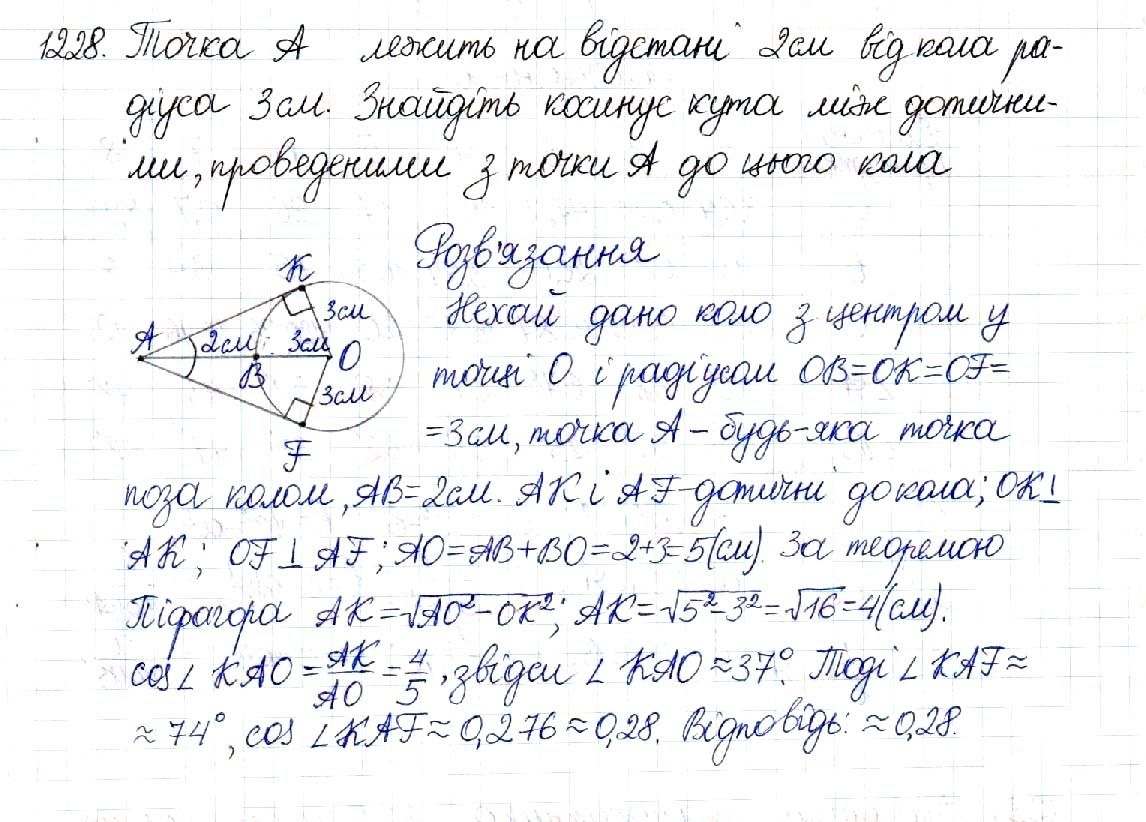 1228. Точка А лежить на відстані 2см від кола ра-
діуса 3см. Знайдіть косинус кута між дотични-
ми, проведеними з точки А до цього кола
Розв'язання
K
3см
A
2см
3см
O
B
3см
F
Нехай дано коло з центром у
точці О і радіусом OB=OK=OF=
=3см, точка А – будь-яка точка
поза колом, AB=2см. AK і AF-дотичні до кола; OK⊥
AK; OF⊥AF; AO=AB+BO=2+3=5(см). За теоремою
Піфагора AK=√AO²-OK²; AK=√5²-3²=√16=4(см).
cos∠KAO=AK/AO=4/5, звідси ∠KAO≈37°. Тоді ∠KAF≈
≈74°, cos∠KAF≈0,276≈0,28. Відповідь: ≈0,28.